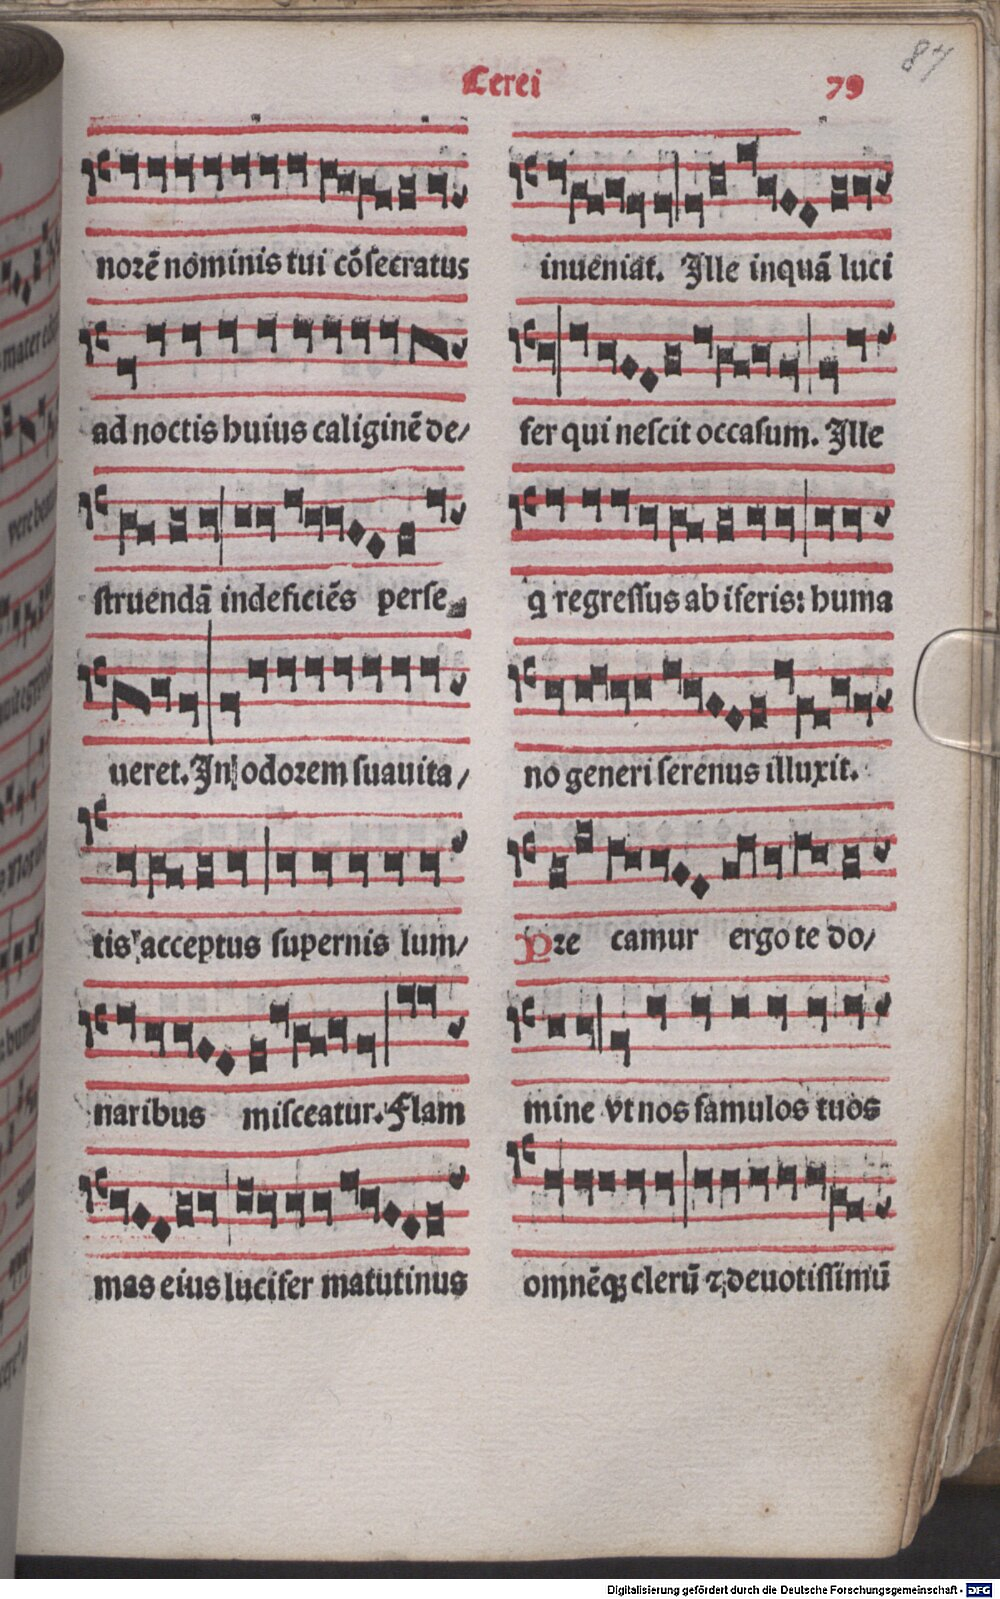 Cerei
79
87
norē nominis tui cōsecratus
ad noctis huius caliginē de/
struendā indeficiēs perse
ueret. In odorem suauita/
tis acceptus supernis lum/
naribus misceatur. Flam
mas eius lucifer matutinus
inueniat. Ille inquā luci
fer qui nescit occasum. Ille
q regressus ab iferis: huma
no generi serenus illuxit.
Pre camur ergo te do/
mine vt nos famulos tuos
omnēqꝫ clerū ⁊ deuotissimū
Digitalisierung gefördert durch die Deutsche Forschungsgemeinschaft - DFG